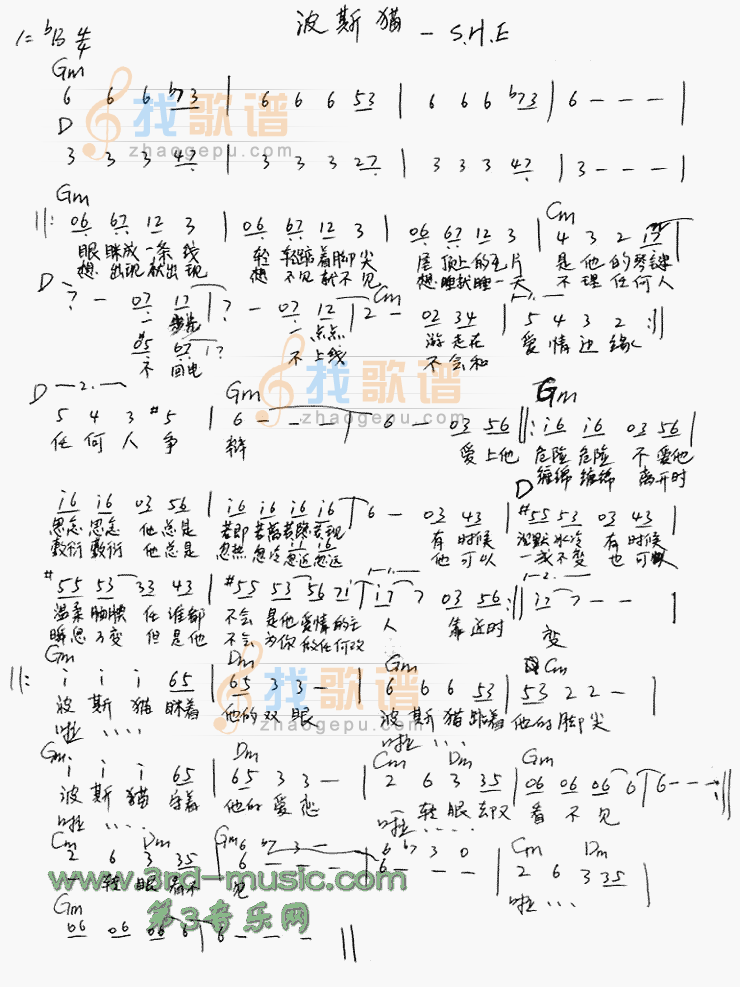 1=♭B 4/4 波斯猫 - S.H.E
Gm
6 6 6 ♭7 3 | 6 6 6 5 3 | 6 6 6 ♭7 3 | 6 - - - |
D
3 3 3 4 7 | 3 3 3 2 7 | 3 3 3 4 7 | 3 - - - |
找歌谱
zhaogepu.com
Gm Cm
||: 06 67 12 3 | 06 67 12 3 | 06 67 12 3 | 4 3 2 17
眼眯成一条线 轻轻踮着脚尖 屋顶上的瓦片 是他的琴键
想出现就出现 想不见就不见 想睡就睡一天 不理任何人
D Cm 1.
7 - 07 17 | 7 - 07 12 | 2 - 02 34 | 5 4 3 2 :||
一点点 游走在 爱情边缘
#5 67 1 7
不回电 不上线 不会和
D 2. Gm Gm
5 4 3 #5 | 6 - - - | 6 - 03 56 ||: i6 i6 03 56 |
任何人争 辩 爱上他 危险危险 不爱他
缠绵缠绵 离开时
找歌谱
zhaogepu.com
D
i6 i6 03 56 | i6 i6 i6 i6 | 6 - 03 43 | #55 53 03 43 |
思念思念 他总是 若即若离若隐若现 有时候 沉默冰冷 有时候
敷衍敷衍 他总是 忽热忽冷忽近忽远 他可以 一成不变 也可以
#55 53 33 43 | #55 53 56 7i | i7 7 03 56 :|| i7 7 - - |
温柔腼腆 任谁都 不会是他爱情的主 人 靠近时 变
瞬息万变 但是他 不会为你做任何改
Gm Dm Gm Cm
||: i i i 65 | 65 3 3 - | 6 6 6 53 | 53 2 2 - |
波斯猫眯着 他的双眼 波斯猫踮着 他的脚尖
啦.... 啦....
找歌谱
zhaogepu.com
Gm Dm Cm Dm Gm
i i i 65 | 65 3 3 - | 2 6 3 35 | 06 06 06 6 | 6 - - - :||
波斯猫守着 他的爱恋 一转眼却又 看不见
啦.... 啦....
Cm Dm Gm Cm Dm
2 6 3 35 | 6 - - - | 6 - - - | 2 6 3 35 |
6 ♭7 3 - 6 ♭7 3 0
一转眼 不 见 啦....
www.3rd-music.com
第3音乐网
Gm
06 06 06 6 | 6 - - - ||